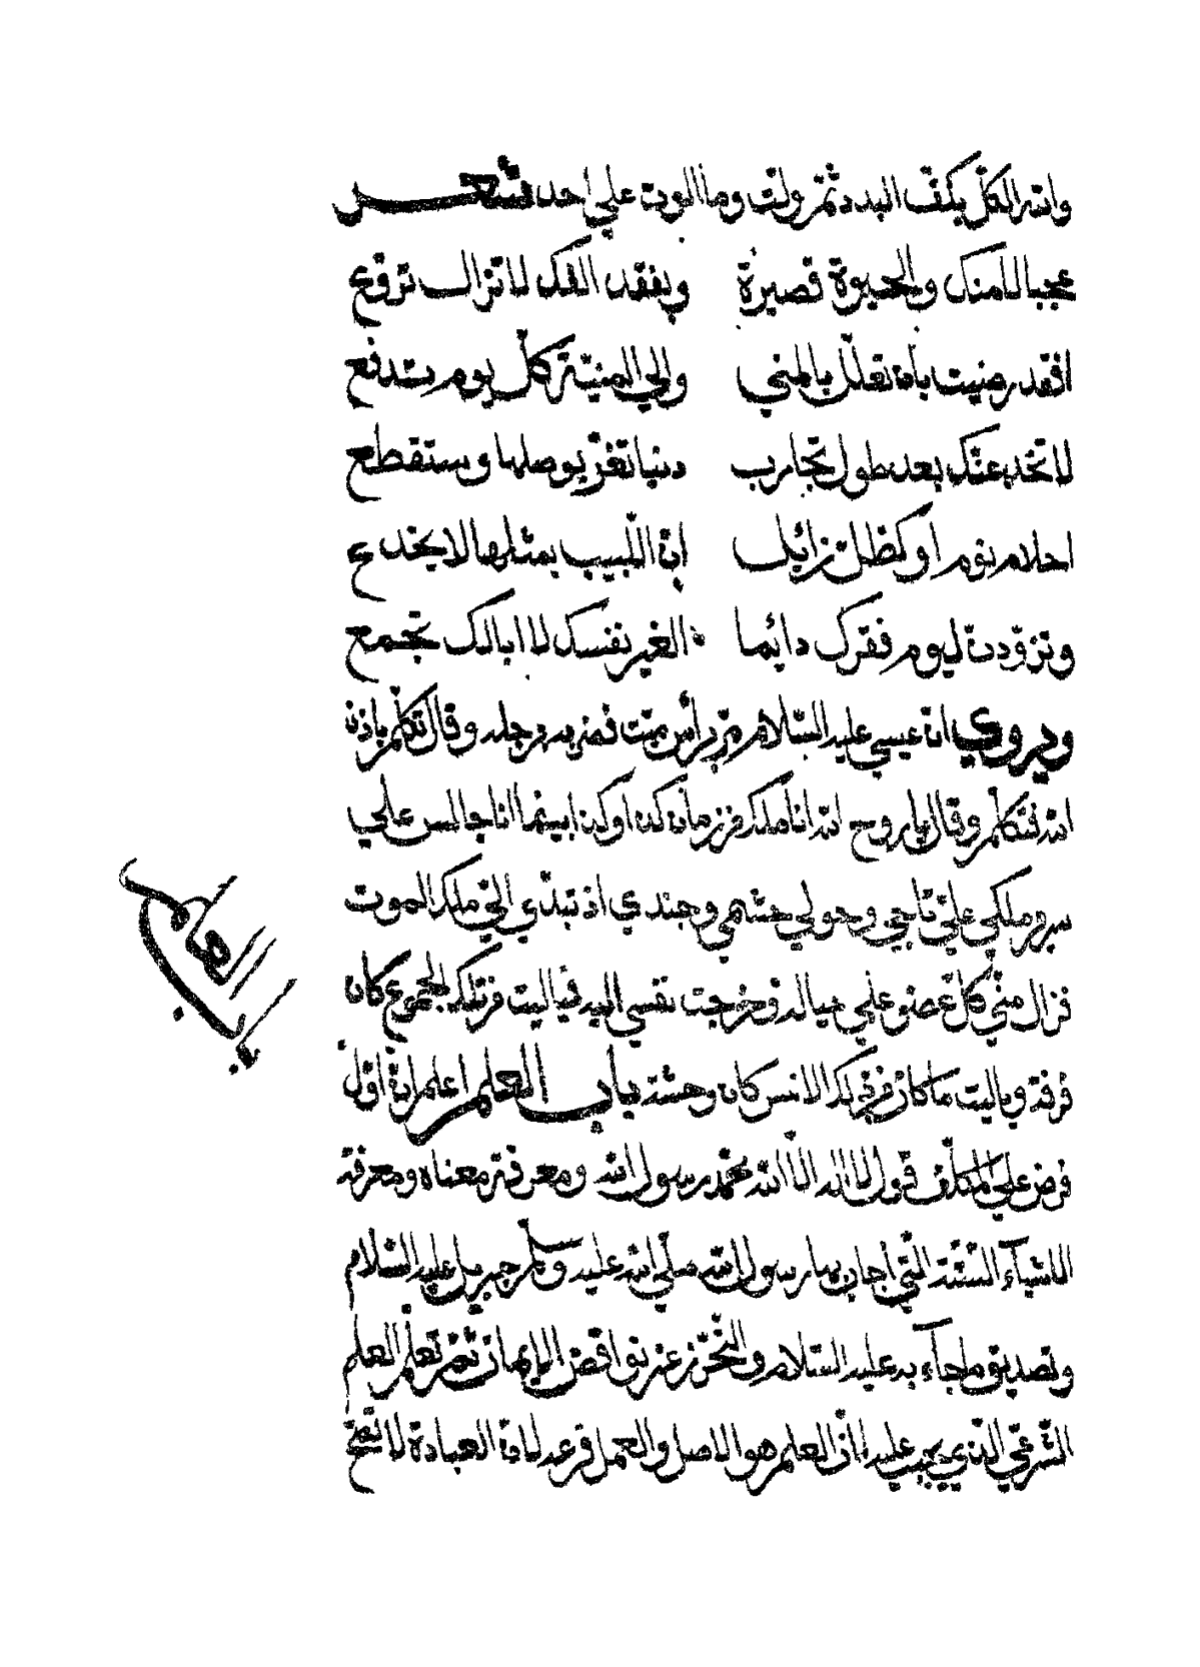 وانتم الكل بكف البدد ثم ولت وما الموت علي احد شعر
عجبا لأمنك والحيوة قصيرة وبفقد الفك لا تزال تروّع
افقد رضيت بأن تعلّل بالمني والي المنيّة كلّ يوم تدفع
لا تخدعنّك بعد طول تجارب دنيا تغرّ بوصلها وستقطع
احلام نوم او كظلّ زائل انّ اللّبيب بمثلها لا يخدع
وتزوّدن ليوم فقرك دائما الغير نفسك لا ابالك تجمع
ويروي ان عيسي عليه السّلام مرّ برأس ميّت فضربه برجله وقال تكلّم باذن
الله فتكلّم وقال يا روح الله انا ملك في زمان كذا وكذا بينما انا جالس علي
سرير ملكي عليّ تاجي وحولي حشمي وجندي اذ تبدّي اليّ ملك الموت
فزال منّي كلّ عضو علي حياله وخرجت نفسي اليه فيا ليت من تلك الجموع كان
فرقة ويا ليت ما كان من ذلك الانس كان وحشة باب العلم اعلم انّ اوّل
فرض علي المكلّف قول لا اله الّا الله محمّد رسول الله ومعرفة معناه ومعرفة
الاشيآء السّتّة الّتي اجاب بها رسول الله صلّي الله عليه وسلّم جبريل عليه السّلام
وتصديق ما جآء به عليه السّلام والتّحرّز عن نواقض الايمان ثمّ تعلّم العلم
الشّرعيّ الّذي يجب عليه لانّ العلم هو الاصل والعمل فرعه لانّ العبادة لا تصحّ
باب العلم